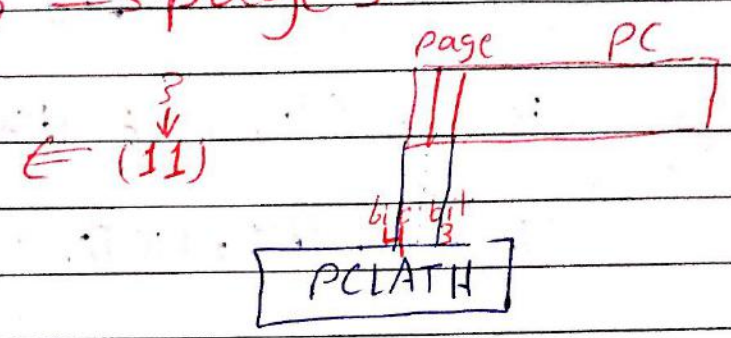 pages
page PC
3
(11)
bit 4 bit 3
PCLATH